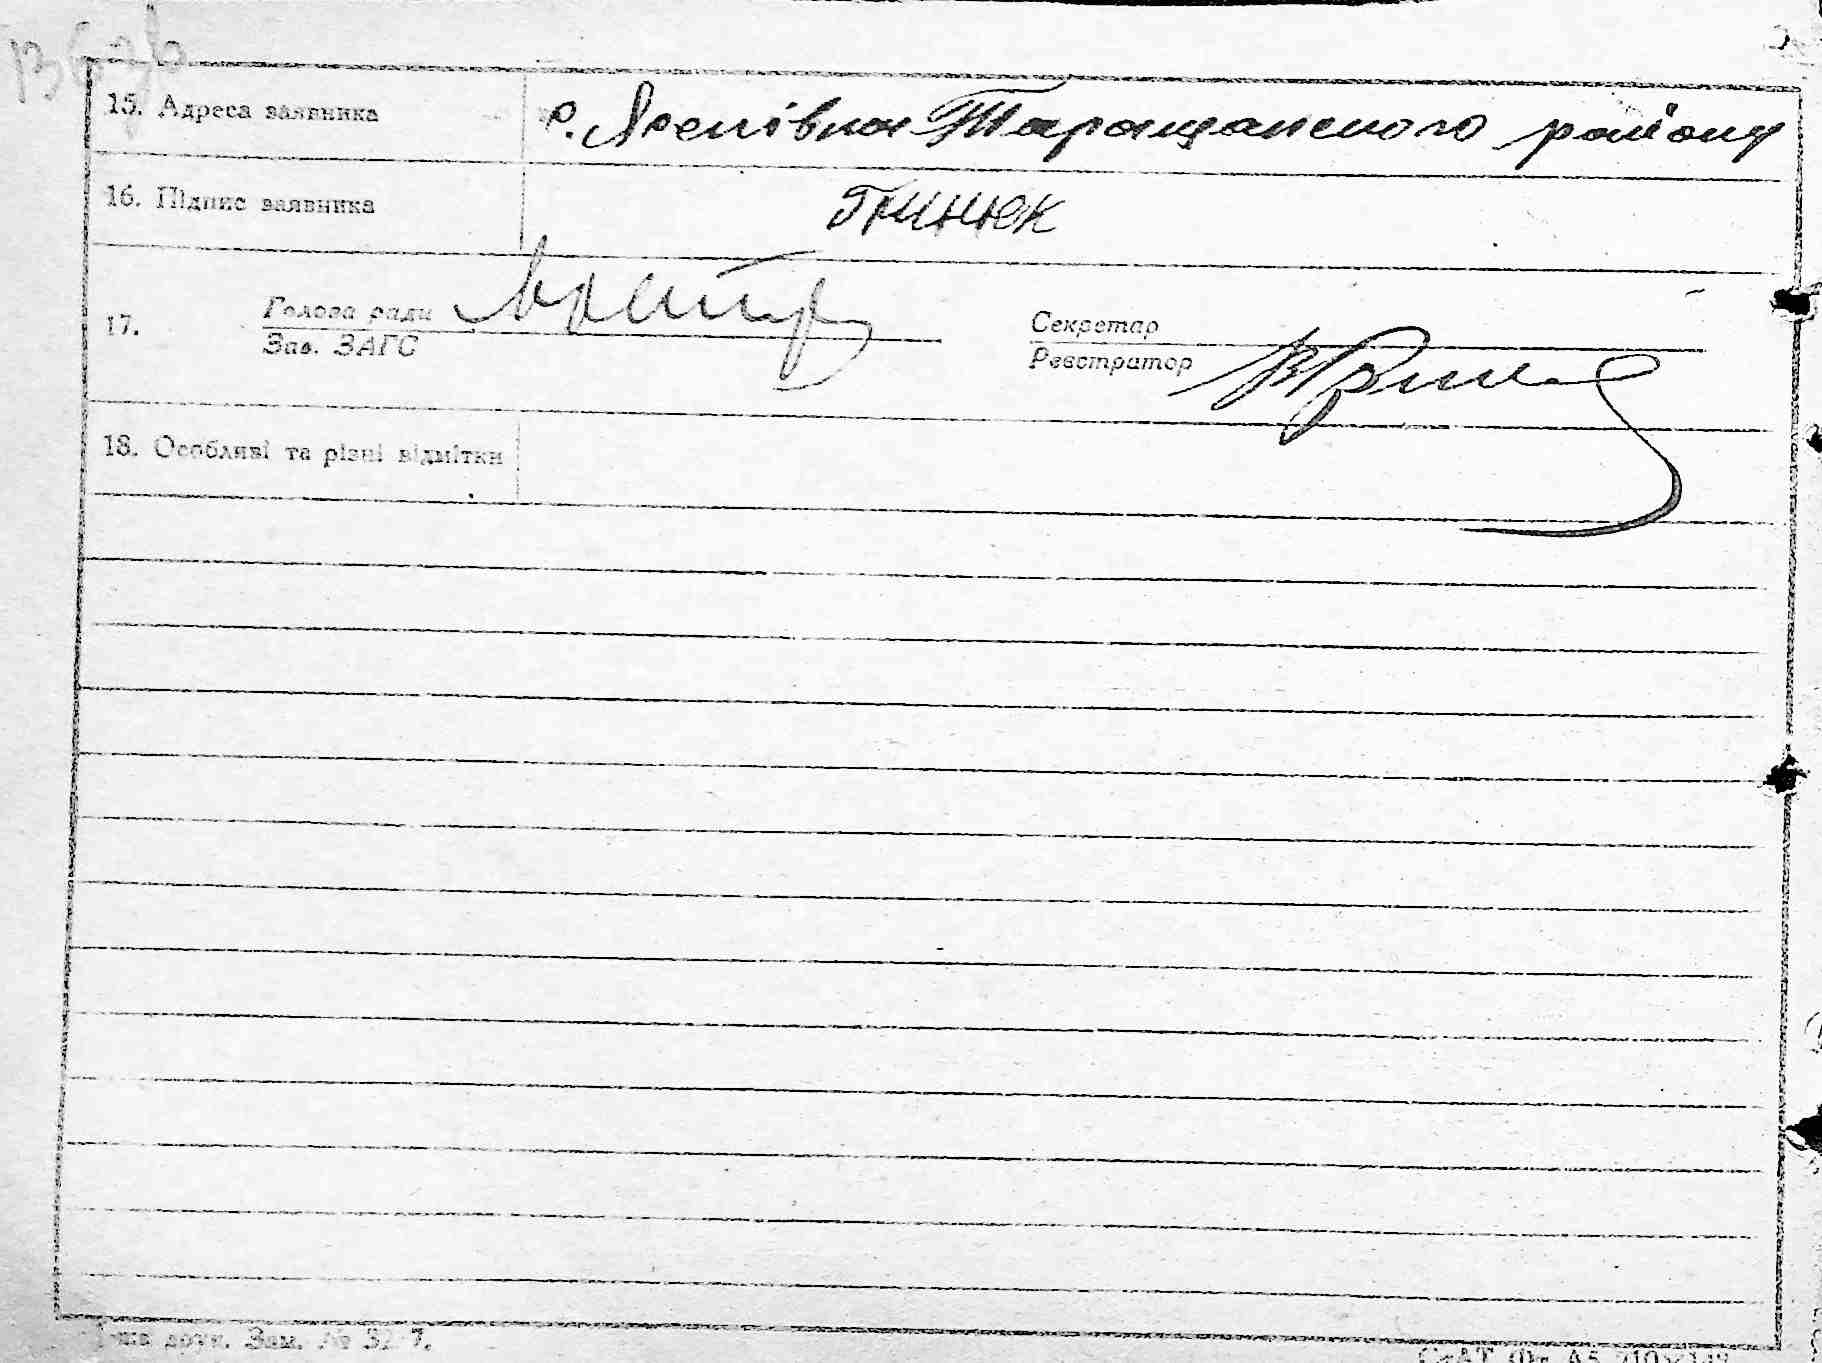 15. Адреса заявника с. Лесівка Таращанського району
16. Підпис заявника Гнинюк
17. Голова ради
Зав. ЗАГС
Секретар
Реєстратор
18. Особливі та різні відмітки
друк. Зам. №